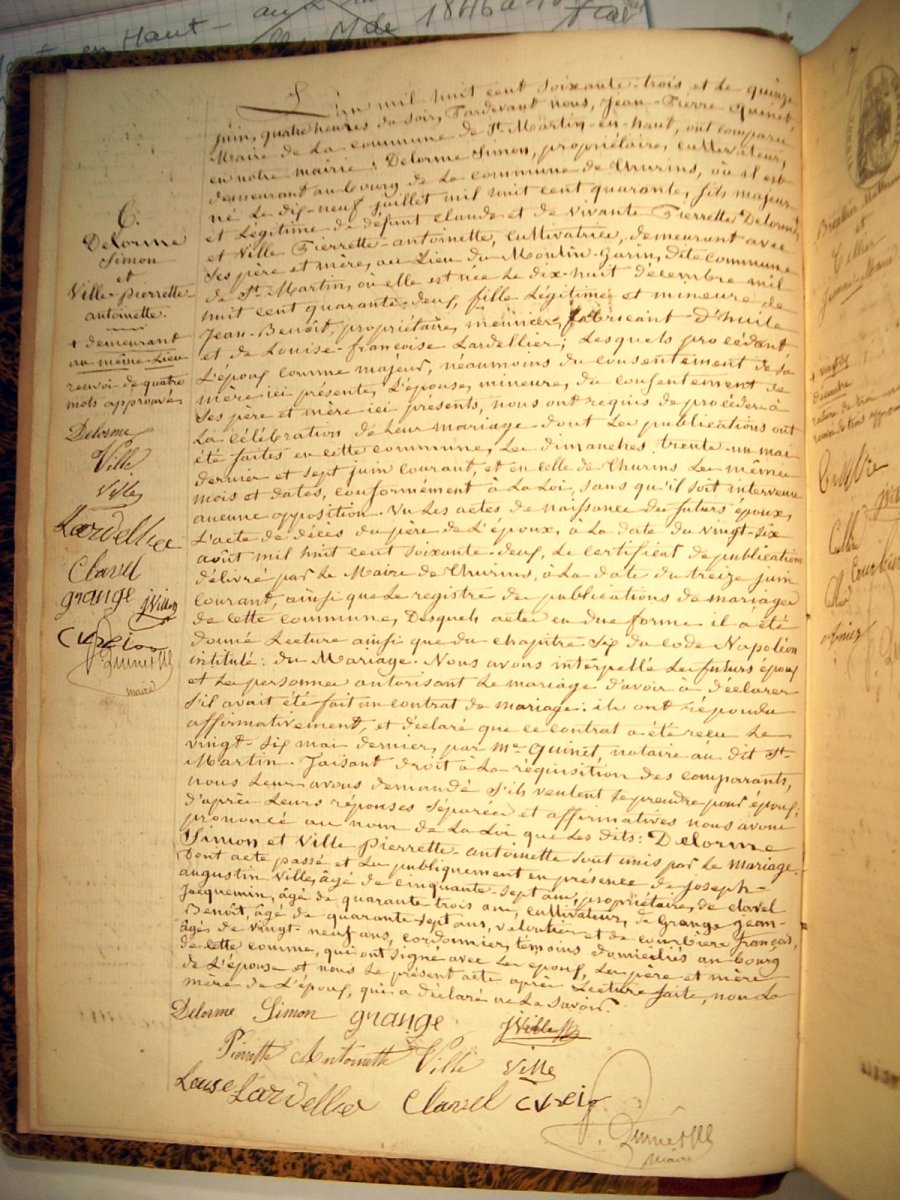 en Haut -
Mde 1846 à
6.
Delorme
Simon
et
Ville Pierrette-
antoinette.
+ demeurant
au même Lieu
renvoi de quatre
mots approuvé.
Delorme
Ville
Ville
Lardellier
Clavel
grange JVille
maire
L'an mil huit cent soixante-trois et Le quinze
juin, quatre heures du soir, Pardevant nous, Jean-Pierre Quinet,
Maire de La commune de St Martin-en-haut, ont comparu
en notre mairie: Delorme Simon, propriétaire, cultivateur,
demeurant au bourg de La commune de Thurins, où il est
né Le dix-neuf juillet mil huit cent quarante, fils majeur
et Légitime de défunt claude et de vivante Pierrette Delorme,
et Ville Pierrette-antoinette, cultivatrice, demeurant avec
Ses père et mère, au Lieu du Moulin-Garin, dite commune
de St Martin, où elle est née Le dix-huit décembre mil
huit cent quarante-deux, fille Légitime et mineure de
Jean-Benoît, propriétaire, meûnier, fabricant d'huile
et de Louise-françoise Lardellier; Lesquels procédant
L'époux comme majeur, néaumoins du consentement de sa
mère ici présente, L'épouse, mineure, du consentement de
Ses père et mère ici présents, nous ont requis de procéder à
La célébration de Leur mariage dont Les publications ont
été faites en cette commune, Les dimanches trente-un mai
dernier et sept juin courant, et en celle de Thurins Les mêmes
mois et dates, conformément à La Loi, sans qu'il soit intervenu
aucune opposition. Vu Les actes de naissance des futurs époux,
L'acte de décès du père de L'époux, à La date du vingt-six
août mil huit cent soixante-deux, Le certificat de publications
délivré par Le Maire de Thurins, à La date du treize juin
courant, ainsi que Le registre des publications de mariage
de cette commune, Desquels actes en due forme il a été
donné Lecture ainsi que du chapitre Six du code Napoléon
intitulé: du Mariage. Nous avons interpellé Les futurs époux
et Les personnes autorisant Le mariage d'avoir à déclarer
S'il avait été fait un contrat de mariage: ils ont répondu
affirmativement, et déclaré que ce contrat a été reçu Le
vingt-six mai dernier, par Me Quinet, notaire au dit St-
Martin. Faisant droit à La réquisition des comparants,
nous Leur avons demandé S'ils veulent Se prendre pour époux;
d'après Leurs réponses Séparées et affirmatives nous avons
prononcé au nom de La Loi que Les dits: Delorme
Simon et Ville Pierrette-antoinette Sont unis par Le mariage.
Dont acte passé et Lu publiquement en présence de Joseph-
augustin Ville, âgé de cinquante-sept ans, propriétaire, de clavel
Jacquemin, âgé de quarante trois ans, cultivateur, de Grange Jean-
Benoît, âgé de quarante-sept ans, veloutier et de courbière françois,
âgé de vingt-neuf ans, cordonnier, témoins domiciliés au bourg
de cette comme, qui ont signé avec Les époux, Les père et mère
de L'épouse et nous Le présent acte après Lecture faite, non La
mère de L'époux, qui a déclaré ne Le savoir.
Delorme Simon grange JVille
Pierrette Antoinette Ville Ville
Louise Lardellier Clavel
maire
et